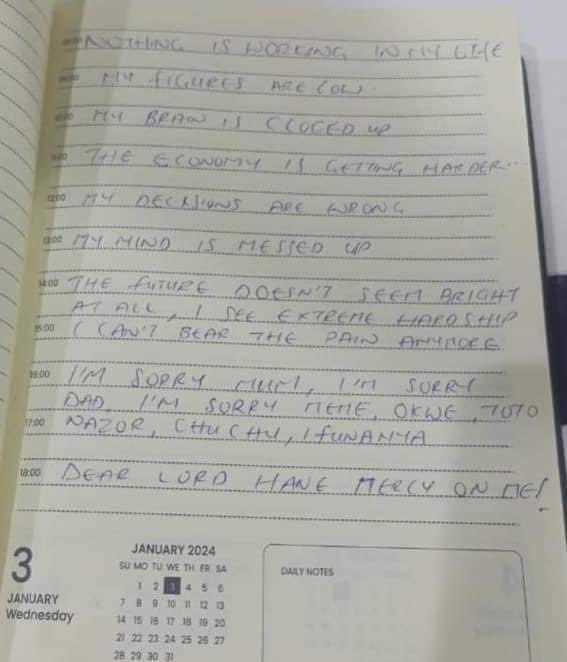 09:00 NOTHING IS WORKING IN MY LIFE
MY FIGURES ARE LOW.
MY BRAIN IS CLOGED UP
THE ECONOMY IS GETTING HARDER...
12:00 MY DECISIONS ARE WRONG
13:00 MY MIND IS MESSED UP
14:00 THE FUTURE DOESN'T SEEM BRIGHT
AT ALL, I SEE EXTREME HARDSHIP
15:00 I CAN'T BEAR THE PAIN ANYMORE
I'M SORRY MUM, I'M SORRY
DAD, I'M SORRY MEME, OKWE, TOTO
17:00 NAZOR, CHUCHU, IFUNANYA
18:00 DEAR LORD HAVE MERCY ON ME!
3
JANUARY
Wednesday
JANUARY 2024
SU MO TU WE TH FR SA
1 2 3 4 5 6
7 8 9 10 11 12 13
14 15 16 17 18 19 20
21 22 23 24 25 26 27
28 29 30 31
DAILY NOTES